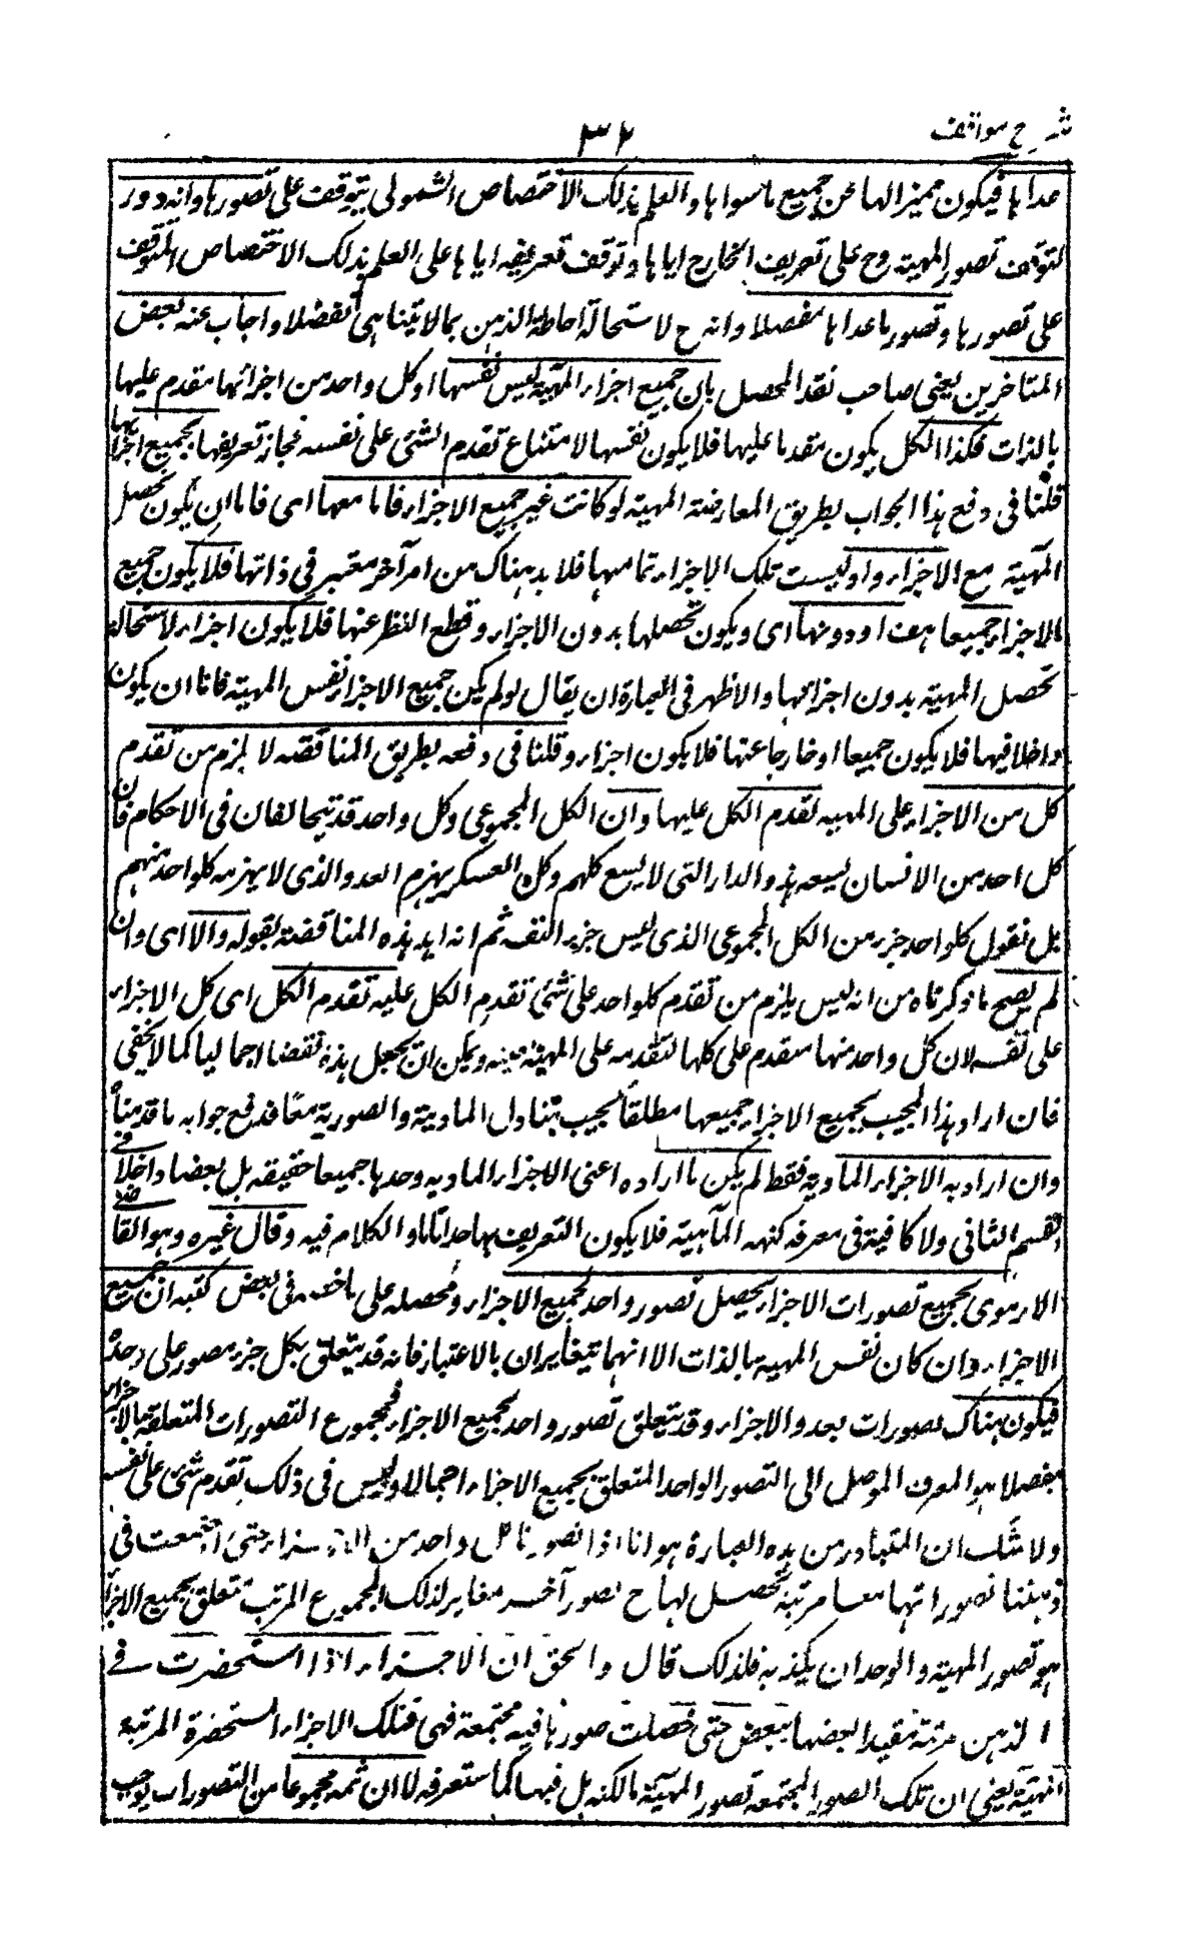 شرح مواقف
٣٢
عداها فيكون مميزا لها عن جميع ما سواها والعلم بذلك الاختصاص الشمولى يتوقف على تصورها وانه دور
لتوقف تصور المهية ح على تعريف الخارج اياها وتوقف تعريفه اياها على العلم بذلك الاختصاص المتوقف
على تصورها وتصور ما عداها مفصلا وانه ح لاستحالة احاطة الذهن بما لا يتناهى تفصيلا واجاب عنه بعض
المتاخرين يعنى صاحب نقد المحصل بان جميع اجزاء المهية ليس نفسها اذ كل واحد من اجزائها مقدم عليها
بالذات فكذا الكل يكون متقدما عليها فلا يكون نفسها لامتناع تقدم الشئ على نفسه فجاز تعريفها بجميع اجزائها
قلنا فى دفع هذا الجواب بطريق المعارضة المهية لو كانت غير جميع الاجزاء فاما معها اى فاما ان يكون تحصل
المهية مع الاجزاء واذ ليست تلك الاجزاء تمامها فلا بد هناك من امر آخر معتبر فى ذاتها فلا يكون جميع
الاجزاء جميعا هف او دونها اى ويكون تحصلها بدون الاجزاء وقطع النظر عنها فلا يكون اجزاء لاستحالة
تحصل المهية بدون اجزائها والاظهر فى العبارة ان يقال لو لم يكن جميع الاجزاء نفس المهية فاما ان يكون
داخلا فيها فلا يكون جميعا او خارجا عنها فلا يكون اجزاء وقلنا فى دفعه بطريق المناقضه لا يلزم من تقدم
كل من الاجزاء على المهيه تقدم الكل عليها وان الكل المجموعى وكل واحد قد يتخالفان فى الاحكام فان
كل احد من الانسان يسعه هذه الدار التى لا يسع كلهم وكل العسكر يهزم العدو الذى لا يهزمه كلواحد منهم
بل نقول كلواحد جزء من الكل المجموعى الذى ليس جزء النفسه ثم انه ايد هذه المناقضة بقوله والا اى وان
لم يصح ما ذكرناه من انه ليس يلزم من تقدم كلواحد على شئ تقدم الكل عليه تقدم الكل اى كل الاجزاء
على نفسه لان كل واحد منها متقدم على كلها لتقدمه على المهية عينه ويمكن ان يجعل هذه نقضا اجماليا كما لا يخفى
فان اراد هذا المجيب بجميع الاجزاء جميعها مطلقا بحيث يتناول المادية والصورية معا فدفع جوابه ما قدمنا
وان اراد به الاجزاء المادية فقط لم يكن ما اراده اعنى الاجزاء الماديه وحدها جميعا حقيقه بل بعضا داخلا فى
القسم الثانى ولا كافية فى معرفه كنهه الماهية فلا يكون التعريف بها حدا تاما والكلام فيه وقال غيره وهو القاضى
الارموى بجميع تصورات الاجزاء يحصل تصور واحد لجميع الاجزاء ومحصله على ما فى بعض كتبه ان جميع
الاجزاء وان كان نفس المهية بالذات الا انهما يتغايران بالاعتبار فانه قد يتعلق بكل جزء تصور على حدة
فيكون هناك تصورات بعدد الاجزاء وقد يتعلق تصور واحد بجميع الاجزاء فمجموع التصورات المتعلقة بالاجزاء
مفصلا هو المعرف الموصل الى التصور الواحد المتعلق بجميع الاجزاء اجمالا وليس فى ذلك تقدم شئ على نفسه
ولا شك ان المتبادر من هذه العبارة هو انا اذا تصورنا كل واحد من الاجزاء حتى اجتمعت فى
ذهننا تصوراتها معا مرتبة تحصل لنا ح تصور آخر مغاير لذلك المجموع المرتب متعلق بجميع الاجزاء
هو تصور المهية والوجدان يكذبه فلذلك قال والحق ان الاجزاء اذا استحضرت فى
الذهن مرتبة مقيدا بعضها ببعض حتى حصلت صورها فيه مجتمعة فهى فتلك الاجزاء المستحضرة المرتبة
المهية يعنى ان تلك الصور المجتمعة تصور المهية بالكنه بل فيها كما ستعرفه لا ان ثمه مجموعا من التصورات يوجب